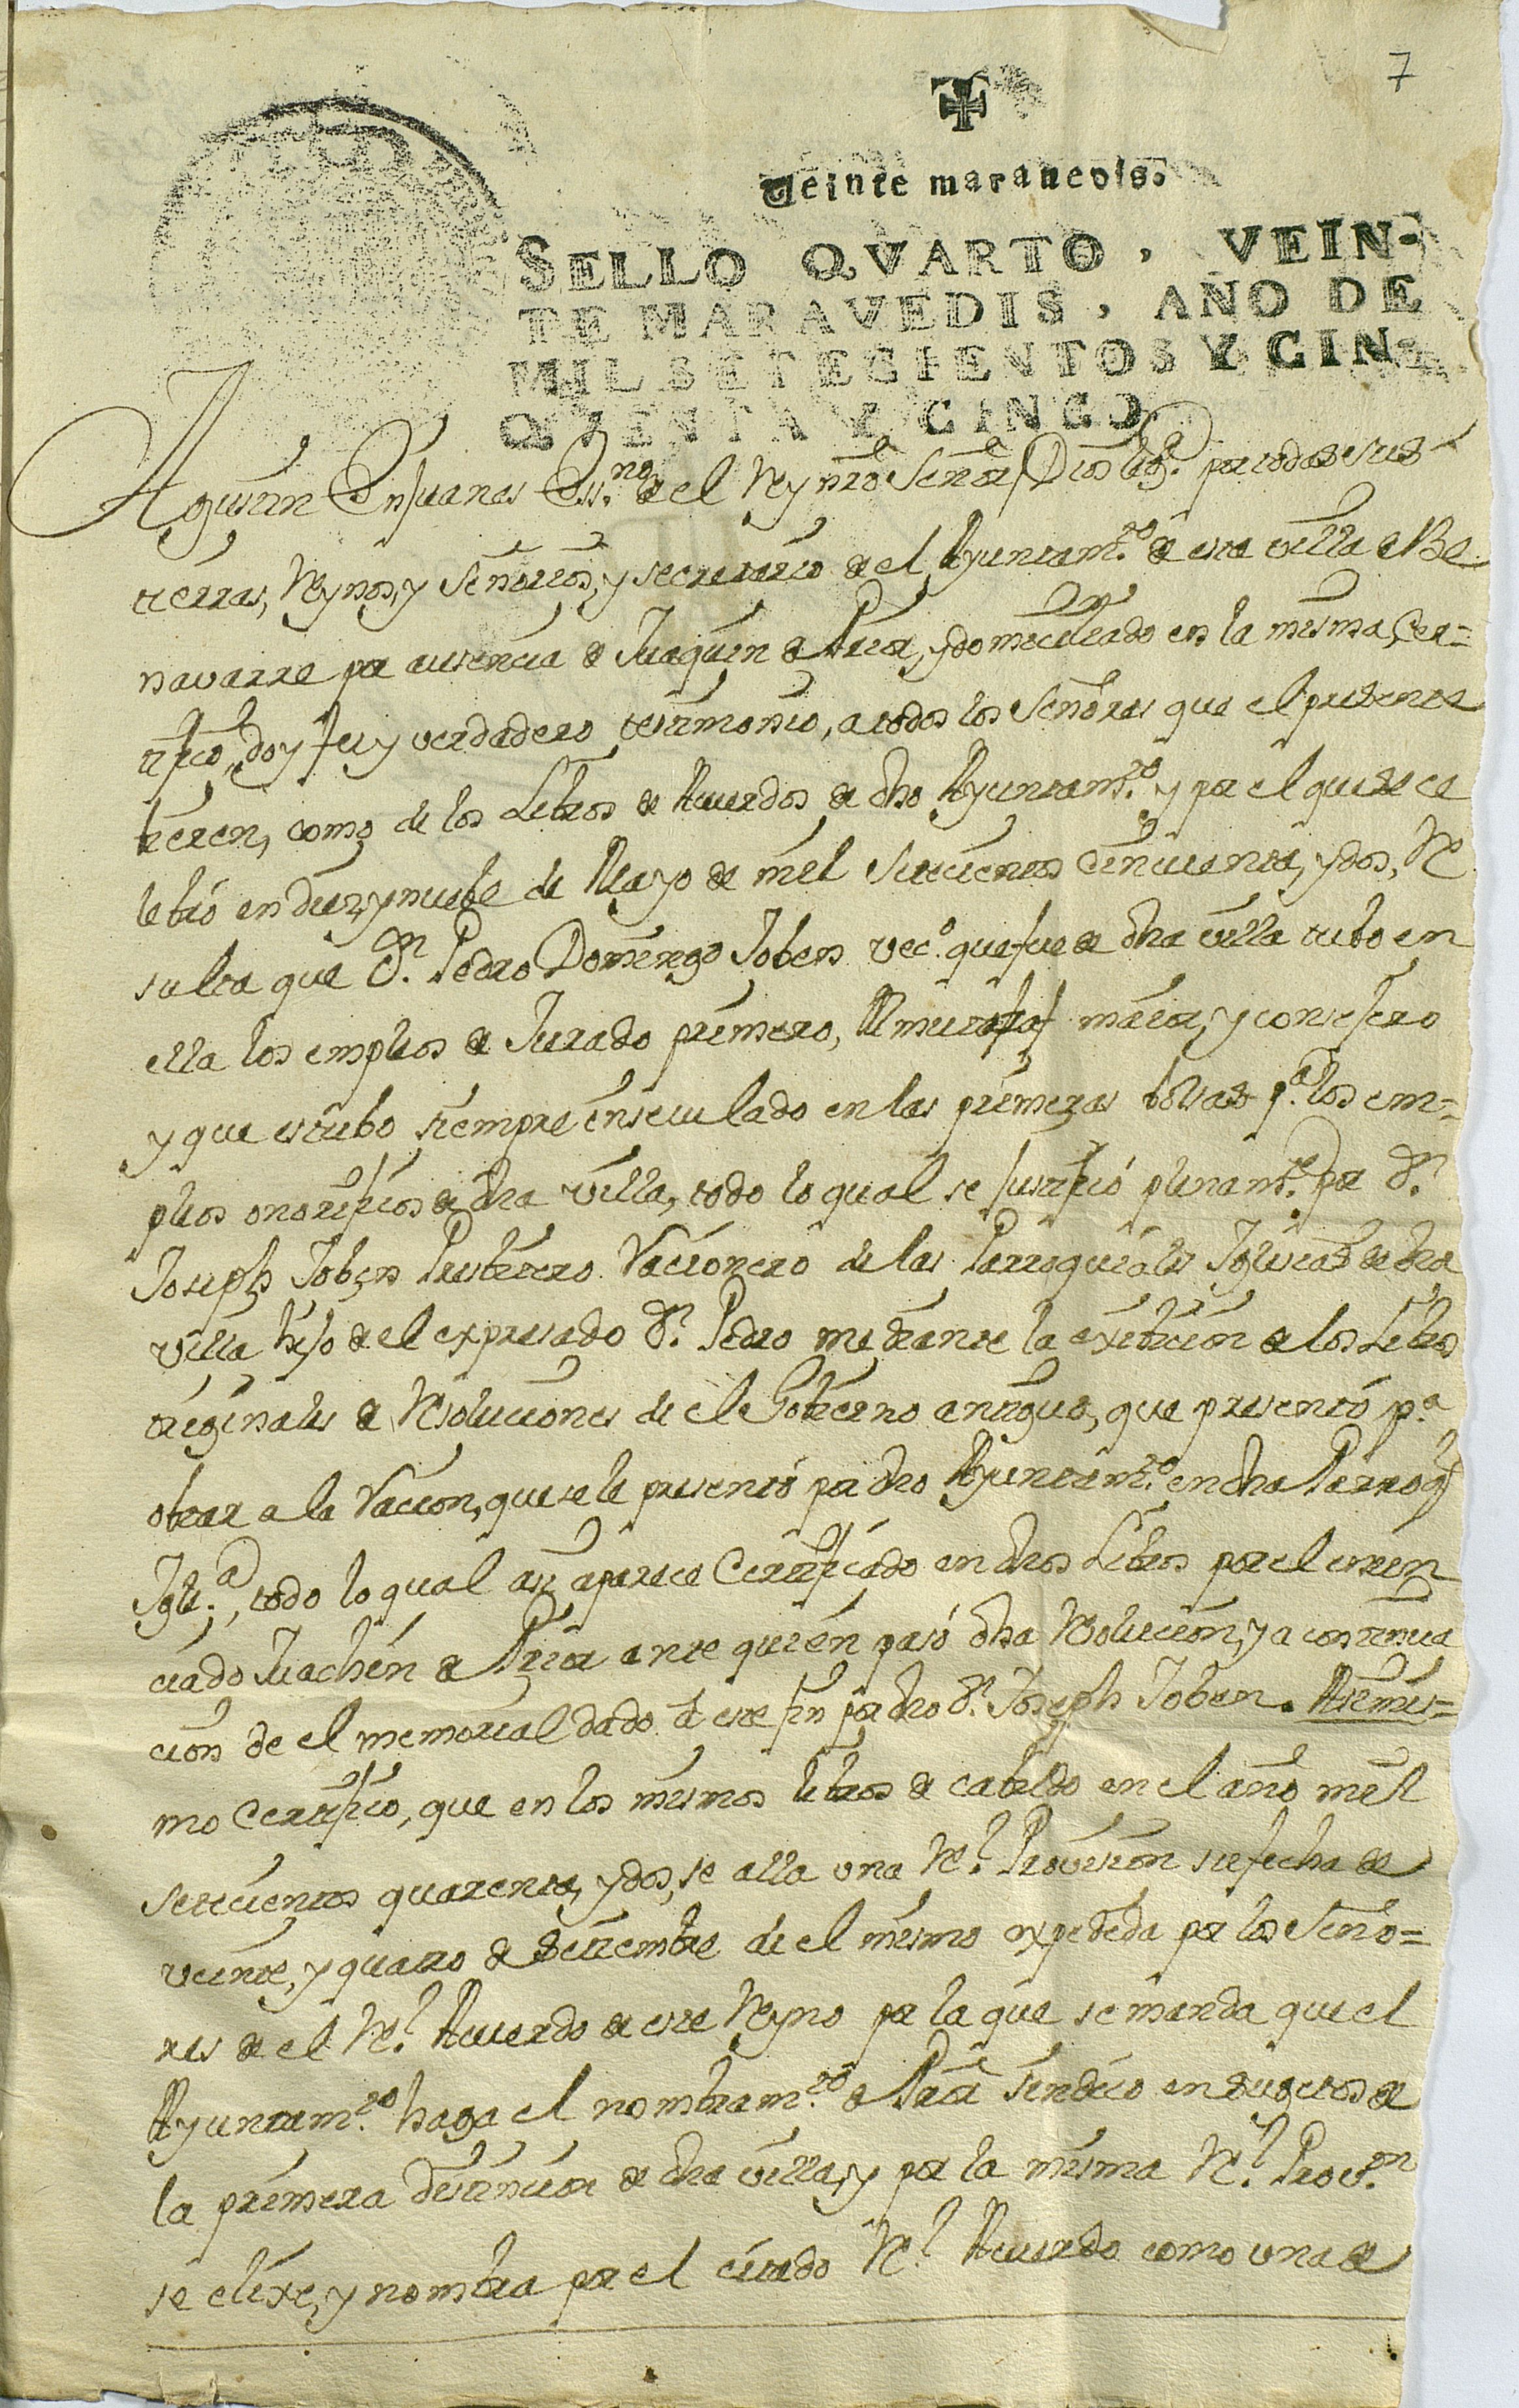 7
Veinte maravedis.
SELLO QVARTO, VEIN-
TE MARAVEDIS, AÑO DE
MIL SETECIENTOS Y CIN-
QUENTA Y CINCO
Agustin Ess.no de el Rey nrô Señor, Dios lê g.e por todas sus
tierras, Reynos, y Señorios, y secretario de el Ayuntam.to de esta villa de Be
navarre por ausencia de Juaquin de Pior, y domiciliado en la misma, Cer=
tifico, doy fee, y verdadero testimonio, a todos los Señores que el presente
bieren, como de los Libros de Acuerdos de dho Ayuntam.to y por el que se ce
lebró en diez, y nuebe de Mayo de mil Setecientos Cinquenta, y dos, Re
sulta que D.n Pedro Domingo Joben vec.o que fue de dha villa tubo en
ella los empleos de Jurado primero, Almutazaf maior, y consejero
y que estubo siempre inseculado en las primeras bolsas p.a los em=
pleos onorificos de dha villa, todo lo qual se justificó plenam.te por D.n
Joseph Joben Presbitero Racionero de las Parroquiales Iglesias de dha
villa hijo de el expresado D.n Pedro mediante la exibicion de los Libros
originales de Resoluciones de el Gobierno antiguo, que presentó p.a
obtar a la Racion, que se le presentó por dho Ayuntam.to en dha Parroq.l
Igle.a, todo lo qual assi aparece Certificado en dhos Libros por el enten
ciado Juachin de Pior ante quien pasó dha Resolucion, y a continua
cion de el memorial dado a este fin por dho D.n Joseph Joben. Asimis=
mo Certifico, que en los mismos libros de cabildo en el año mil
setecientos quarenta, y dos, se alla una R.l Provision su fecha de
veinte, y quatro de Setiembre de el mismo expedida por los Seño=
res de el R.l Acuerdo de este Reyno por la que se manda que el
Ayuntam.to haga el nombram.to de Pror Sindico en sugetos de
la primera distincion de dha villa, y por la misma R.l Prov.on
se elixe, y nombra por el citado R.l Acuerdo como una de